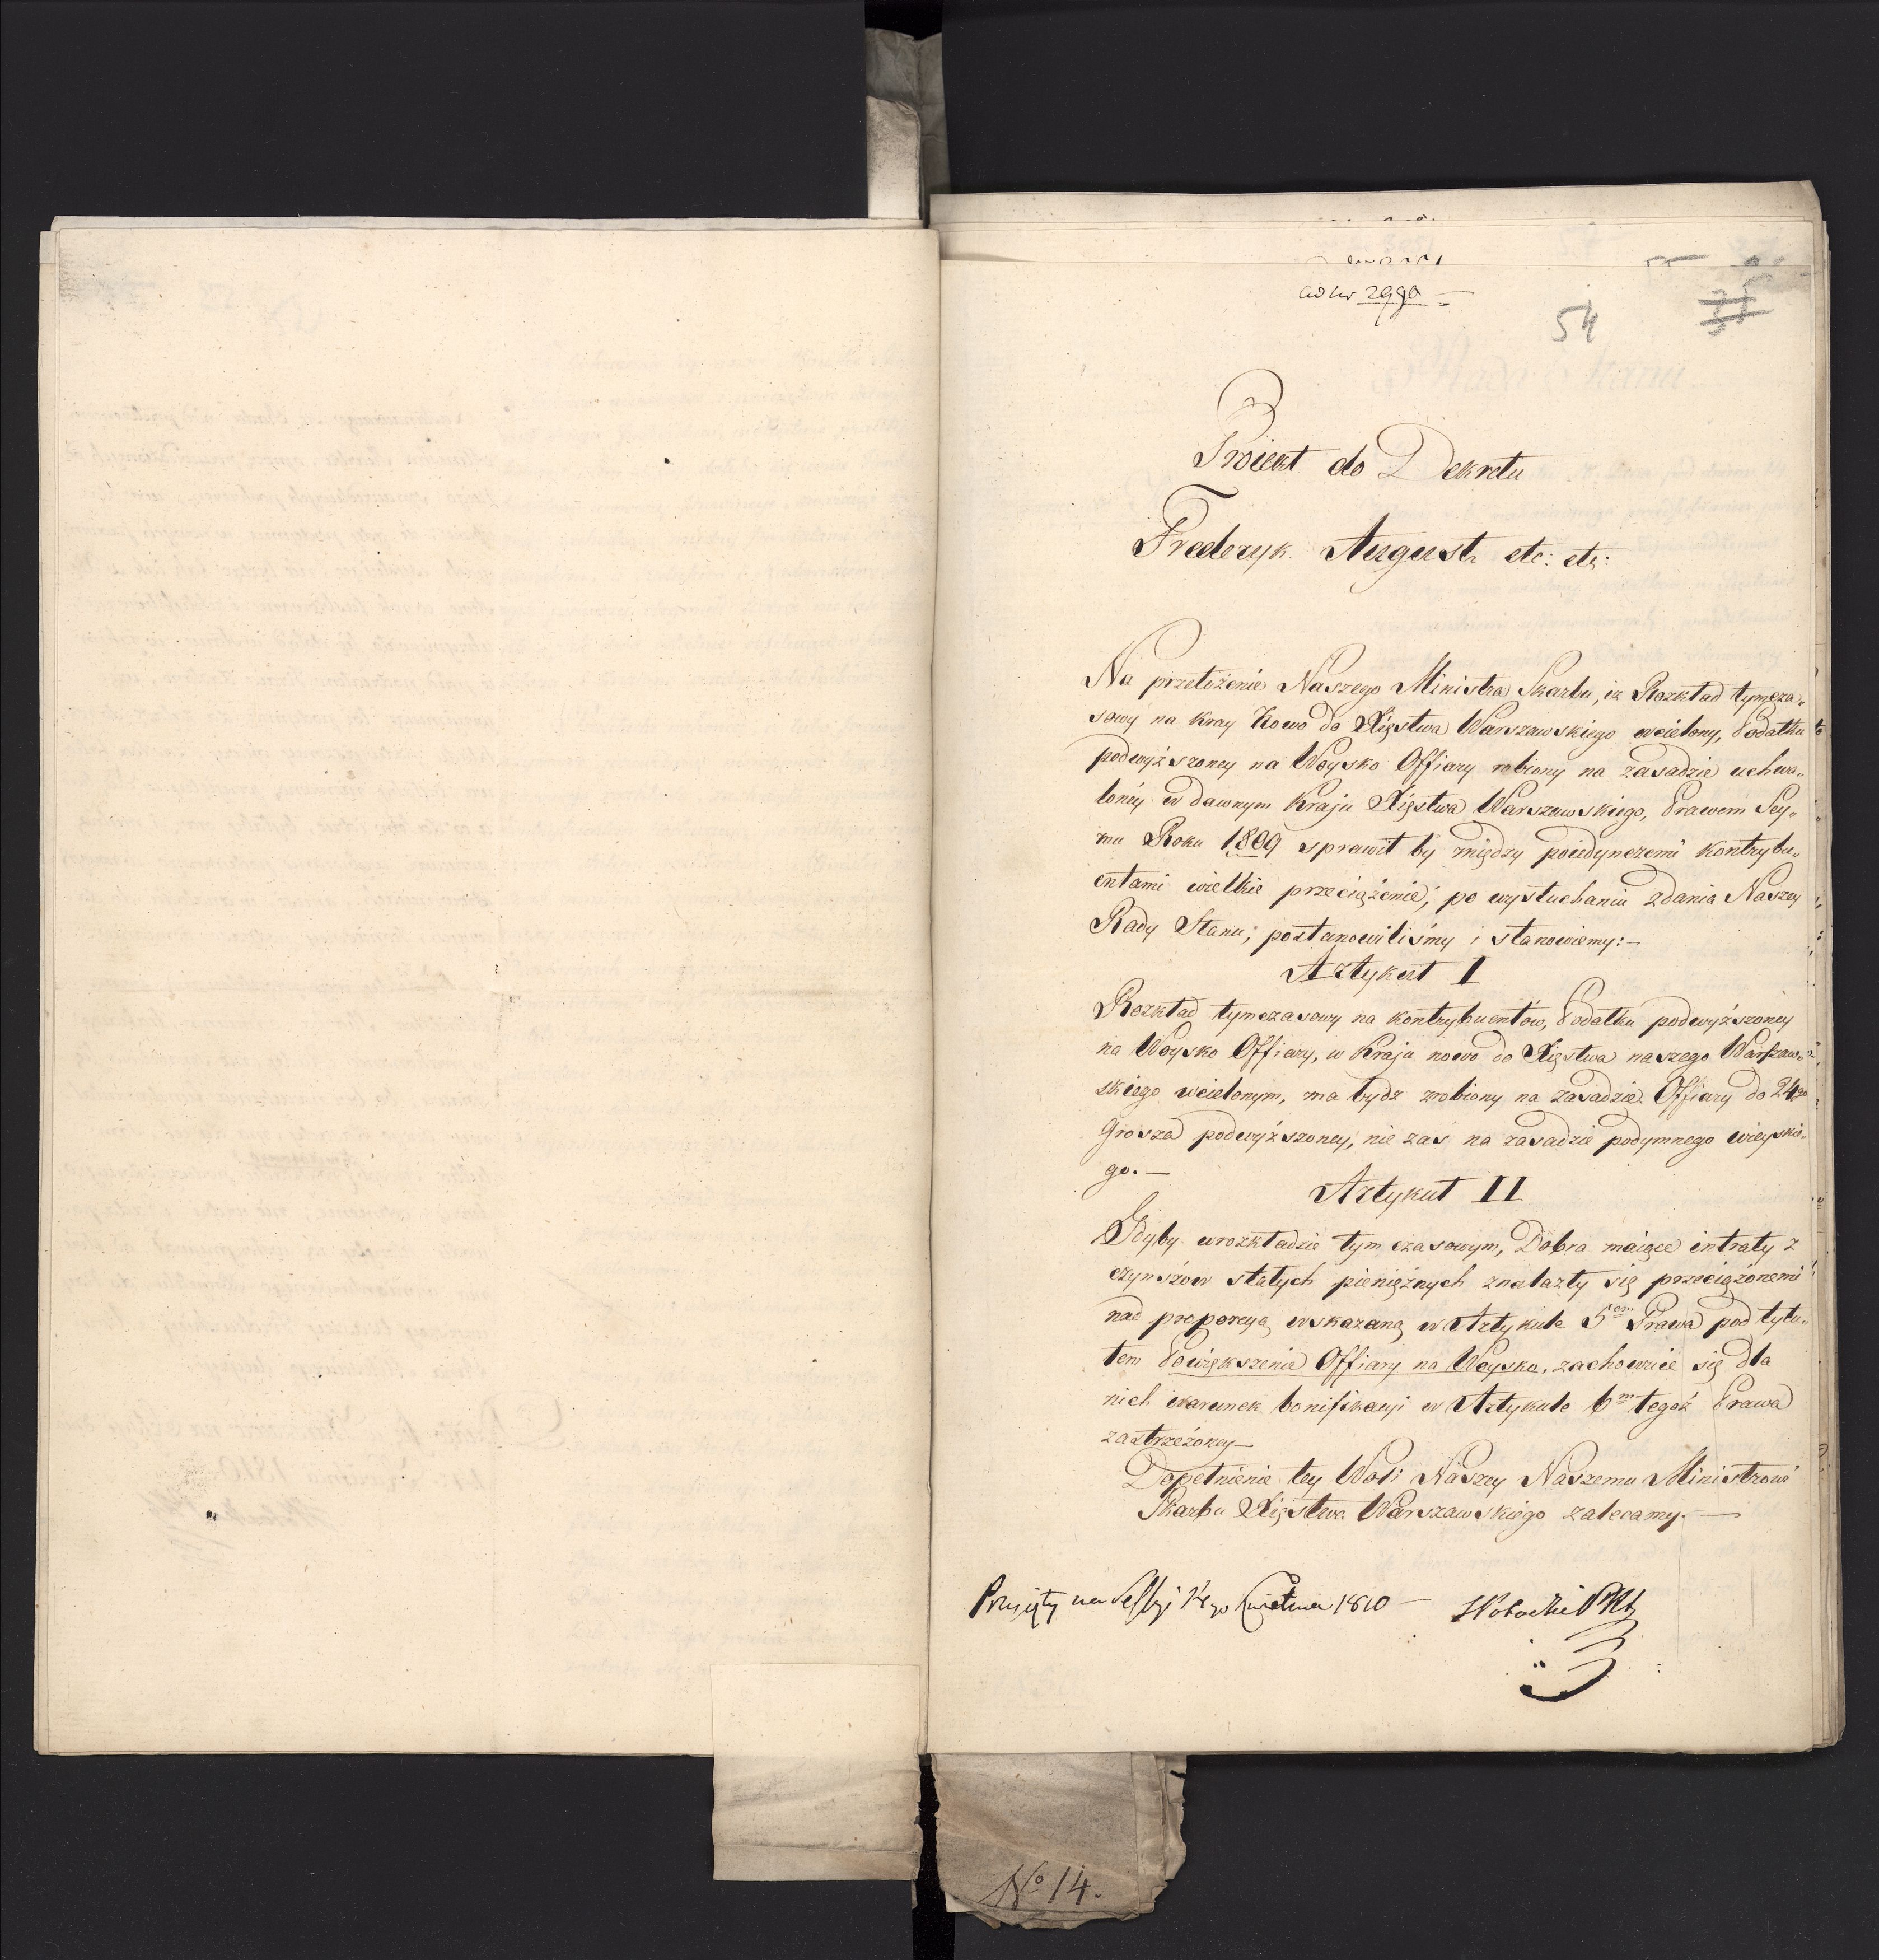 ad Nr 2990
54
Proiekt do Dekretu
Frederyk August etc: etc:
Na przełożenie Naszego Ministra Skarbu, iż Rozkład tymcza„
sowy na Kray nowo do Xięstwa Warszawskiego wcielony, Podatku
podwyższoney na Woysko Offiary robiony na zasadzie uchwa„
loney w dawnym Kraju Xięstwa Warszawskiego, Prawem Sey„
mu Roku 1809 sprawił by między poiedynczemi kontrybu„
entami wielkie przeciążenie; po wysłuchaniu zdania Naszey
Rady Stanu; postanowiliśmy i stanowiemy:—
Artykuł I
Rozkład tymczasowy na kontrybuentów, Podatku podwyższoney
na Woysko Offiary, w Kraju nowo do Xięstwa naszego Warszaw„
skiego wcielonym, ma bydź zrobiony na zasadzie Offiary do 24go
Grosza podwyższoney, nie zaś na zasadzie podymnego wieyskie„
go.—
Artykuł II
Gdyby w rozkładzie tymczasowym, Dobra maiące intraty z
czynszów stałych pieniężnych znalazły się przeciążonemi
nad proporcyą wskazaną w Artykule 5em Prawa pod tytu„
łem Powiększenie Offiary na Woysko, zachowuie się dla
nich warunek bonifikacyi w Artykule 6m tegoż Prawa
zastrzeżoney—
Dopełnienie tey Woli Naszey Naszemu Ministrowi
Skarbu Xięstwa Warszawskiego zalecamy.—
Przyięty na Sessyi 14go Kwietnia 1810 —
No 14.